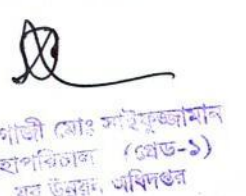 গাজী মোঃ সাইফুজ্জামান
মহাপরিচালক (গ্রেড-১)
যুব উন্নয়ন অধিদপ্তর